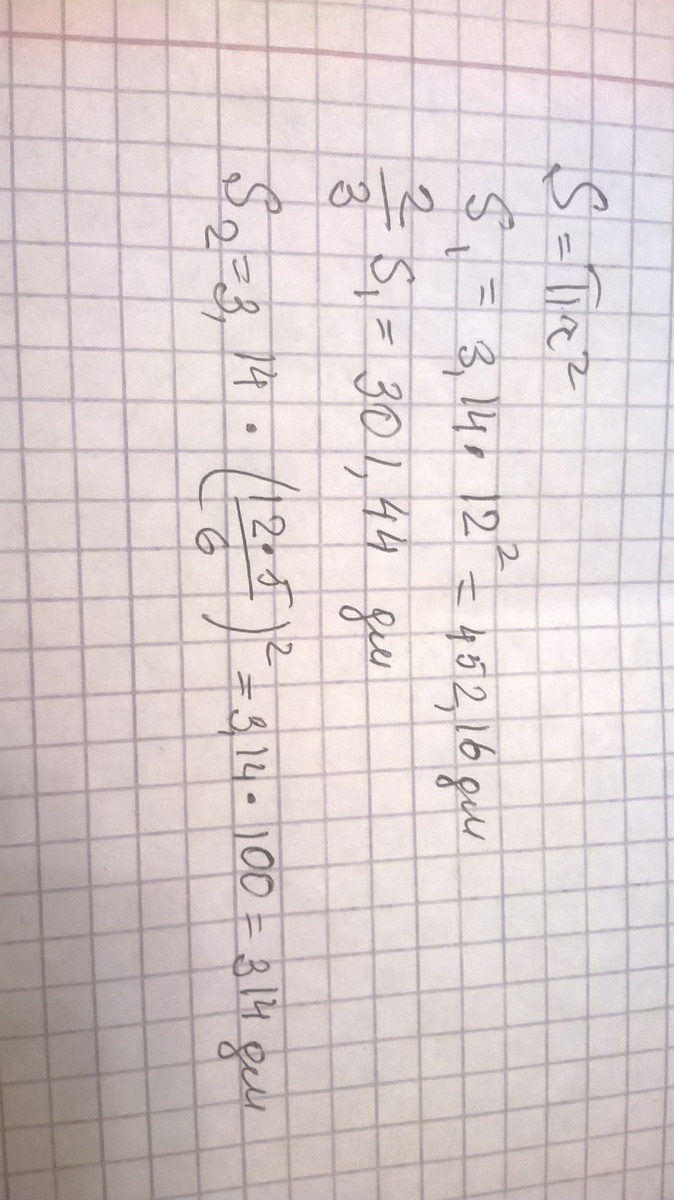 S = πr²
S₁ = 3,14 · 12² = 452,16 дм
2/3 S₁ = 301,44 дм
S₂ = 3,14 · (12·5/6)² = 3,14 · 100 = 314 дм